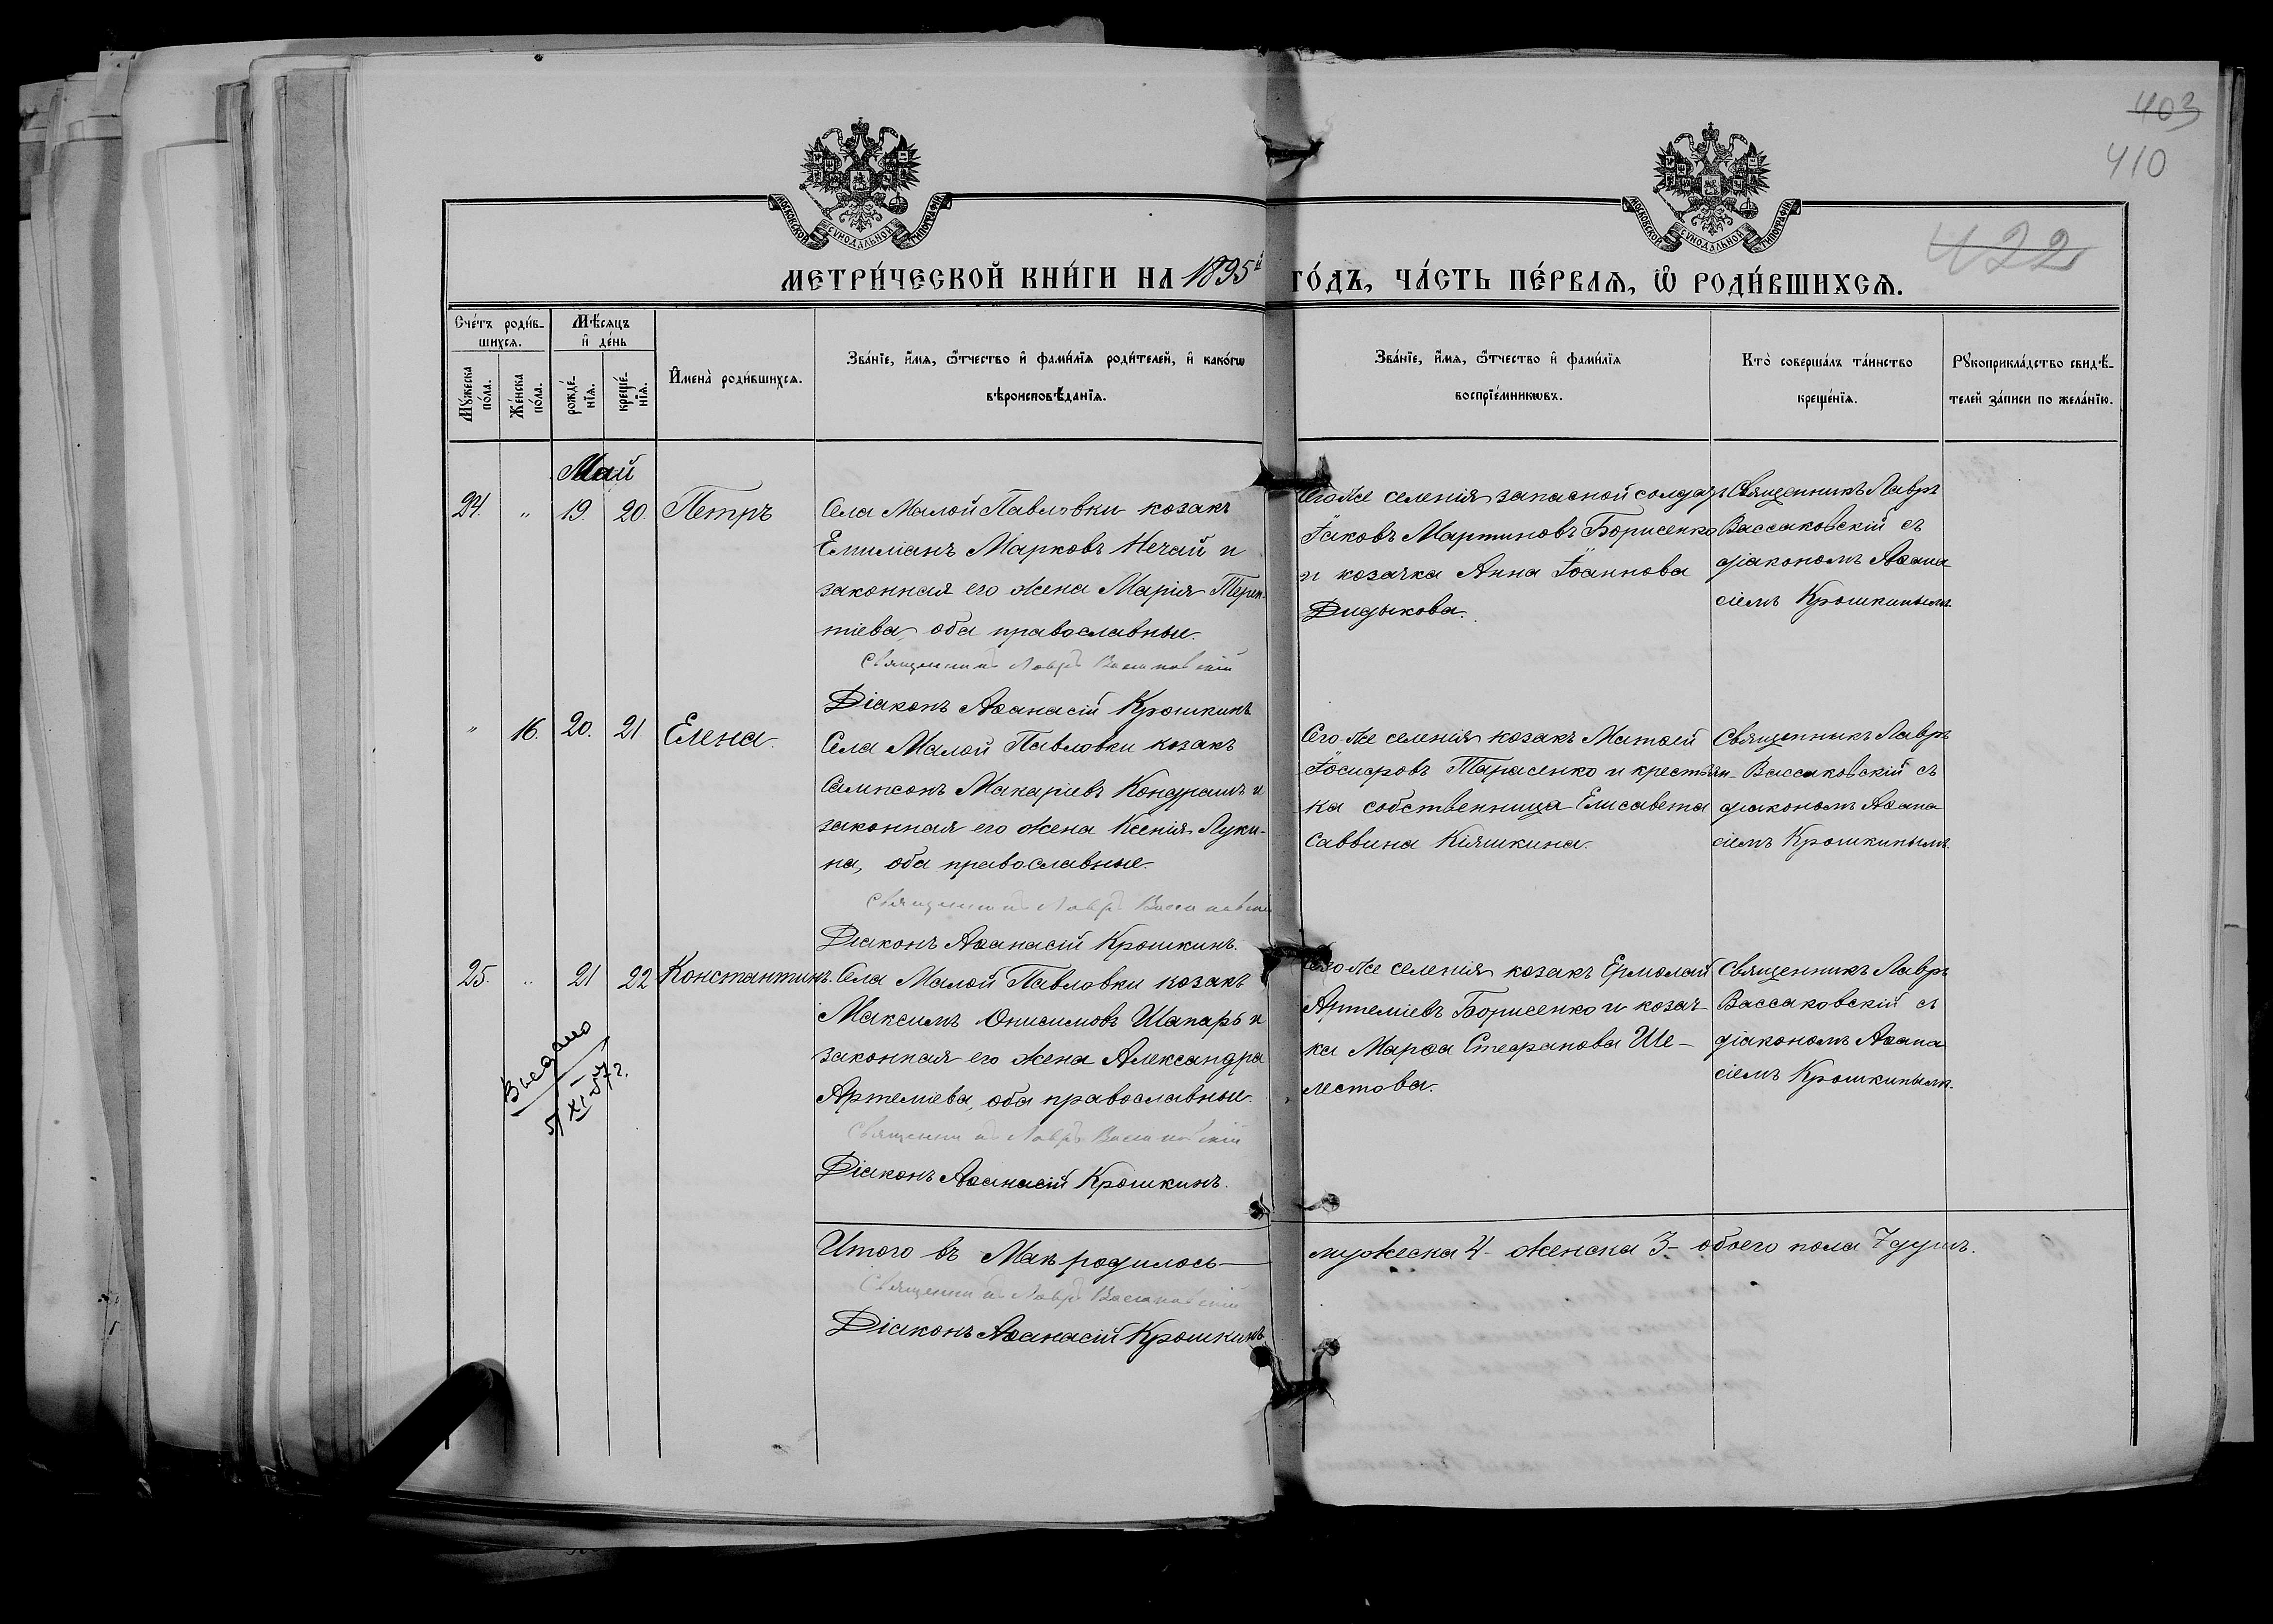 403
410
422
МОСКОВСКОЙ СѴНОДАЛЬНОЙ ТИПОГРАФІИ
МОСКОВСКОЙ СѴНОДАЛЬНОЙ ТИПОГРАФІИ
МЕТРИ́ЧЕСКОЙ КНИ́ГИ НА 1895й ГО́ДЪ, ЧА́СТЬ ПЕ́РВАѦ, Ѡ҆ РОДИ́ВШИХСѦ.
Сче́тъ роди́в-
шихсѧ.
Мꙋ́жеска
по́ла.
Же́нска
по́ла.
Мѣ́сѧцъ
и҆ де́нь
рожде́-
нїѧ.
креще́-
нїѧ.
И҆мена̀ роди́вшихсѧ.
Зва́нїе, и҆́мѧ, ѻ҆́тчество и҆ фами́лїѧ роди́телей, и҆ како́гѡ
вѣроисповѣ́данїѧ.
Зва́нїе, и҆́мѧ, ѻ҆́тчество и҆ фами́лїѧ
воспрїе́мникѡвъ.
Кто̀ соверша́лъ та́инство
креще́нїѧ.
Рꙋкоприкла́дство свидѣ́-
телей за́писи по жела́нїю.
Май
24. " 19. 20. Петръ
Села Малой Павловки козакъ
Емиліанъ Марковъ Нечай и
законная его жена Марія Терен-
тіева, оба православные.
Священникъ Лавръ Вассаковскій
Діаконъ Аѳанасій Крошкинъ
Того же селенія запасной солдатъ
Іаковъ Мартиновъ Борисенко
и козачка Анна Іоаннова
Дидыкова.
Священникъ Лавръ
Вассаковскій съ
діакономъ Аѳана
сіемъ Крошкинымъ
" 16. 20. 21. Елена.
Села Малой Павловки козакъ
Сампсонъ Макаріевъ Кондрашъ и
законная его жена Ксенія Луки-
на, оба православные.
Священникъ Лавръ Вассаковскій
Діаконъ Аѳанасій Крошкинъ.
Того же селенія козакъ Матѳей
Іосифовъ Тарасенко и крестьян-
ка собственница Елисавета
Саввина Кіяшкина.
Священникъ Лавръ
Вассаковскій съ
діакономъ Аѳана
сіемъ Крошкинымъ.
25. " 21 22 Константинъ.
Села Малой Павловки козакъ
Максимъ Онисимовъ Шапаръ и
законная его жена Александра
Артеміева, оба православные.
Священникъ Лавръ Вассаковскій
Діаконъ Аѳанасій Крошкинъ.
Того же селенія козакъ Ермолай
Артеміевъ Борисенко и козач-
ка Марѳа Стефанова Ше-
лестова.
Священникъ Лавръ
Вассаковскій съ
діакономъ Аѳана
сіемъ Крошкинымъ.
Выдано
Итого въ Маѣ родилось— мужеска 4- женска 3- обоего пола 7 душъ.
Священникъ Лавръ Вассаковскій
Діаконъ Аѳанасій Крошкинъ